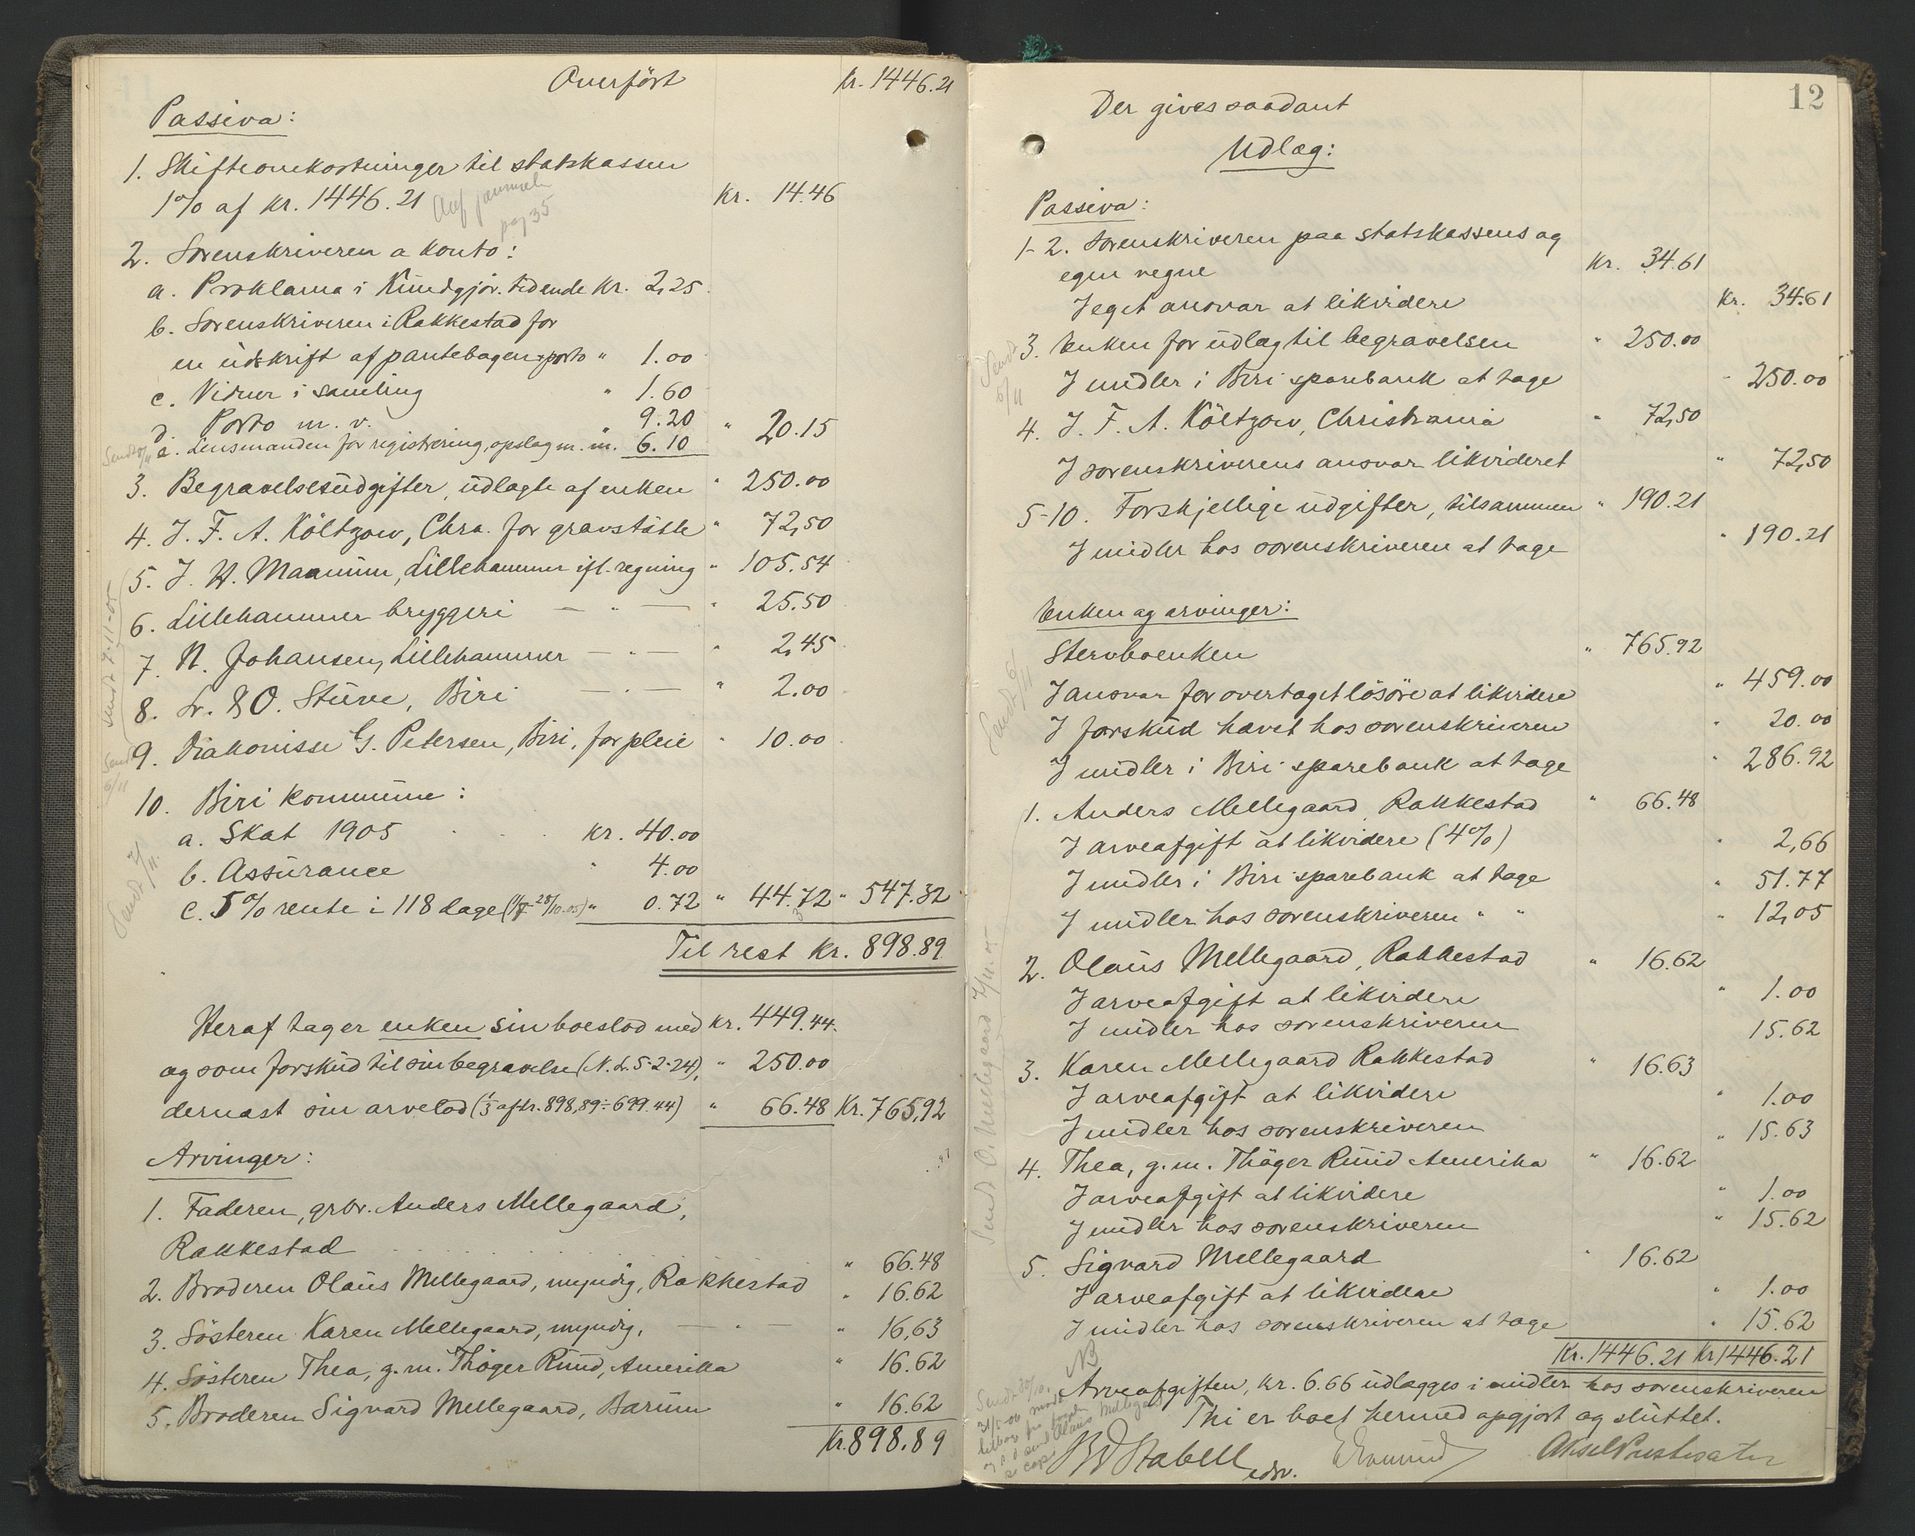 Overført Kr. 1446.21
Passiva:
1. Skifteomkostninger til statskassen
1% af kr. 1446.21 Kr. 14.46
pag 35
2. Sorenskriveren a konto:
a. Proklama i Kundgjør. tidende Kr. 2,25
b. Sorenskriveren i Rakkestad for
en udskrift af pantebogen + porto " 1.00
c. Vidner i samling " 1.60
d. Porto m. v. " 9.20
e. Lensmanden for registrering, opslag m. m. 6.10 " 20.15
3. Begravelsesudgifter, udlagte af enken " 250.00
4. J. F. A. Költzow, Chra. for gravstätte " 72,50
5. J. W. Maanum, Lillehammer ifl. regning " 105.54
6. Lillehammer bryggeri — " — " 25.50
7. N. Johansen, Lillehammer — " — " 2,45
8. Lr. & O. Stuve, Biri — " — " 2.00
9. Diakonisse G. Petersen, Biri, for pleie " 10.00
10. Biri kommune:
a. Skat 1905 kr. 40.00
b. Assurance " 4.00
c. 5% rente i 118 dage (1/7-28/10.05) " 0.72 " 44.72 " 547.32
Til rest kr. 898.89
Heraf tager enken sin boeslod med kr. 449.44
og som forskud til sin begravelse (N. L. 5-2-24), " 250.00
dernæst sin arvelod (1/3 af kr. 898,89 ÷ 699.44) " 66.48 Kr. 765,92
Arvinger:
1. Faderen, grbr. Anders Mellegaard,
Rakkestad " 66.48
2. Broderen Olaus Mellegaard, myndig, Rakkestad " 16.62
3. Søsteren Karen Mellegaard, myndig, — " — " 16,63
4. Søsteren Thea, g. m. Thøger Ruud, Amerika " 16.62
5. Broderen Sigvard Mellegaard, Bærum " 16.62
Kr. 898.89
12
Der gives saadant
Udlæg:
Passiva:
1-2. Sorenskriveren paa statskassens og
egne vegne Kr. 34.61
I eget ansvar at likvidere Kr. 34.61
3. Enken for udlæg til begravelsen " 250.00
I midler i Biri sparebank at tage " 250.00
4. J. F. A. Költzow, Christiania " 72,50
I sorenskriverens ansvar likvideret " 72,50
5-10. Forskjellige udgifter, tilsammen " 190.21
I midler hos sorenskriveren at tage " 190.21
Enken og arvinger:
Stervboenken " 765.92
I ansvar for overtaget løsøre at likvidere " 459.00
I forskud hævet hos sorenskriveren " 20.00
I midler i Biri sparebank at tage " 286.92
1. Anders Mellegaard, Rakkestad " 66.48
I arveafgift at likvidere (4%) " 2,66
I midler i Biri sparebank at tage " 51.77
I midler hos sorenskriveren " " " 12,05
2. Olaus Mellegaard, Rakkestad " 16.62
I arveafgift at likvidere " 1.00
I midler hos sorenskriveren 15.62
3. Karen Mellegaard Rakkestad " 16.63
I arveafgift at likvidere " 1.00
I midler hos sorenskriveren " 15.63
4. Thea, g. m. Thøger Ruud Amerika " 16.62
I arveafgift at likvidere " 1.00
I midler hos sorenskriveren " 15.62
5. Sigvard Mellegaard " 16.62
I arveafgift at likvidere " 1.00
I midler hos sorenskriveren at tage " 15.62
Kr. 1446.21 Kr 1446.21
NB
Arveafgiften, kr. 6.66 udlægges i midler hos sorenskriveren
Thi er boet hermed opgjort og sluttet.